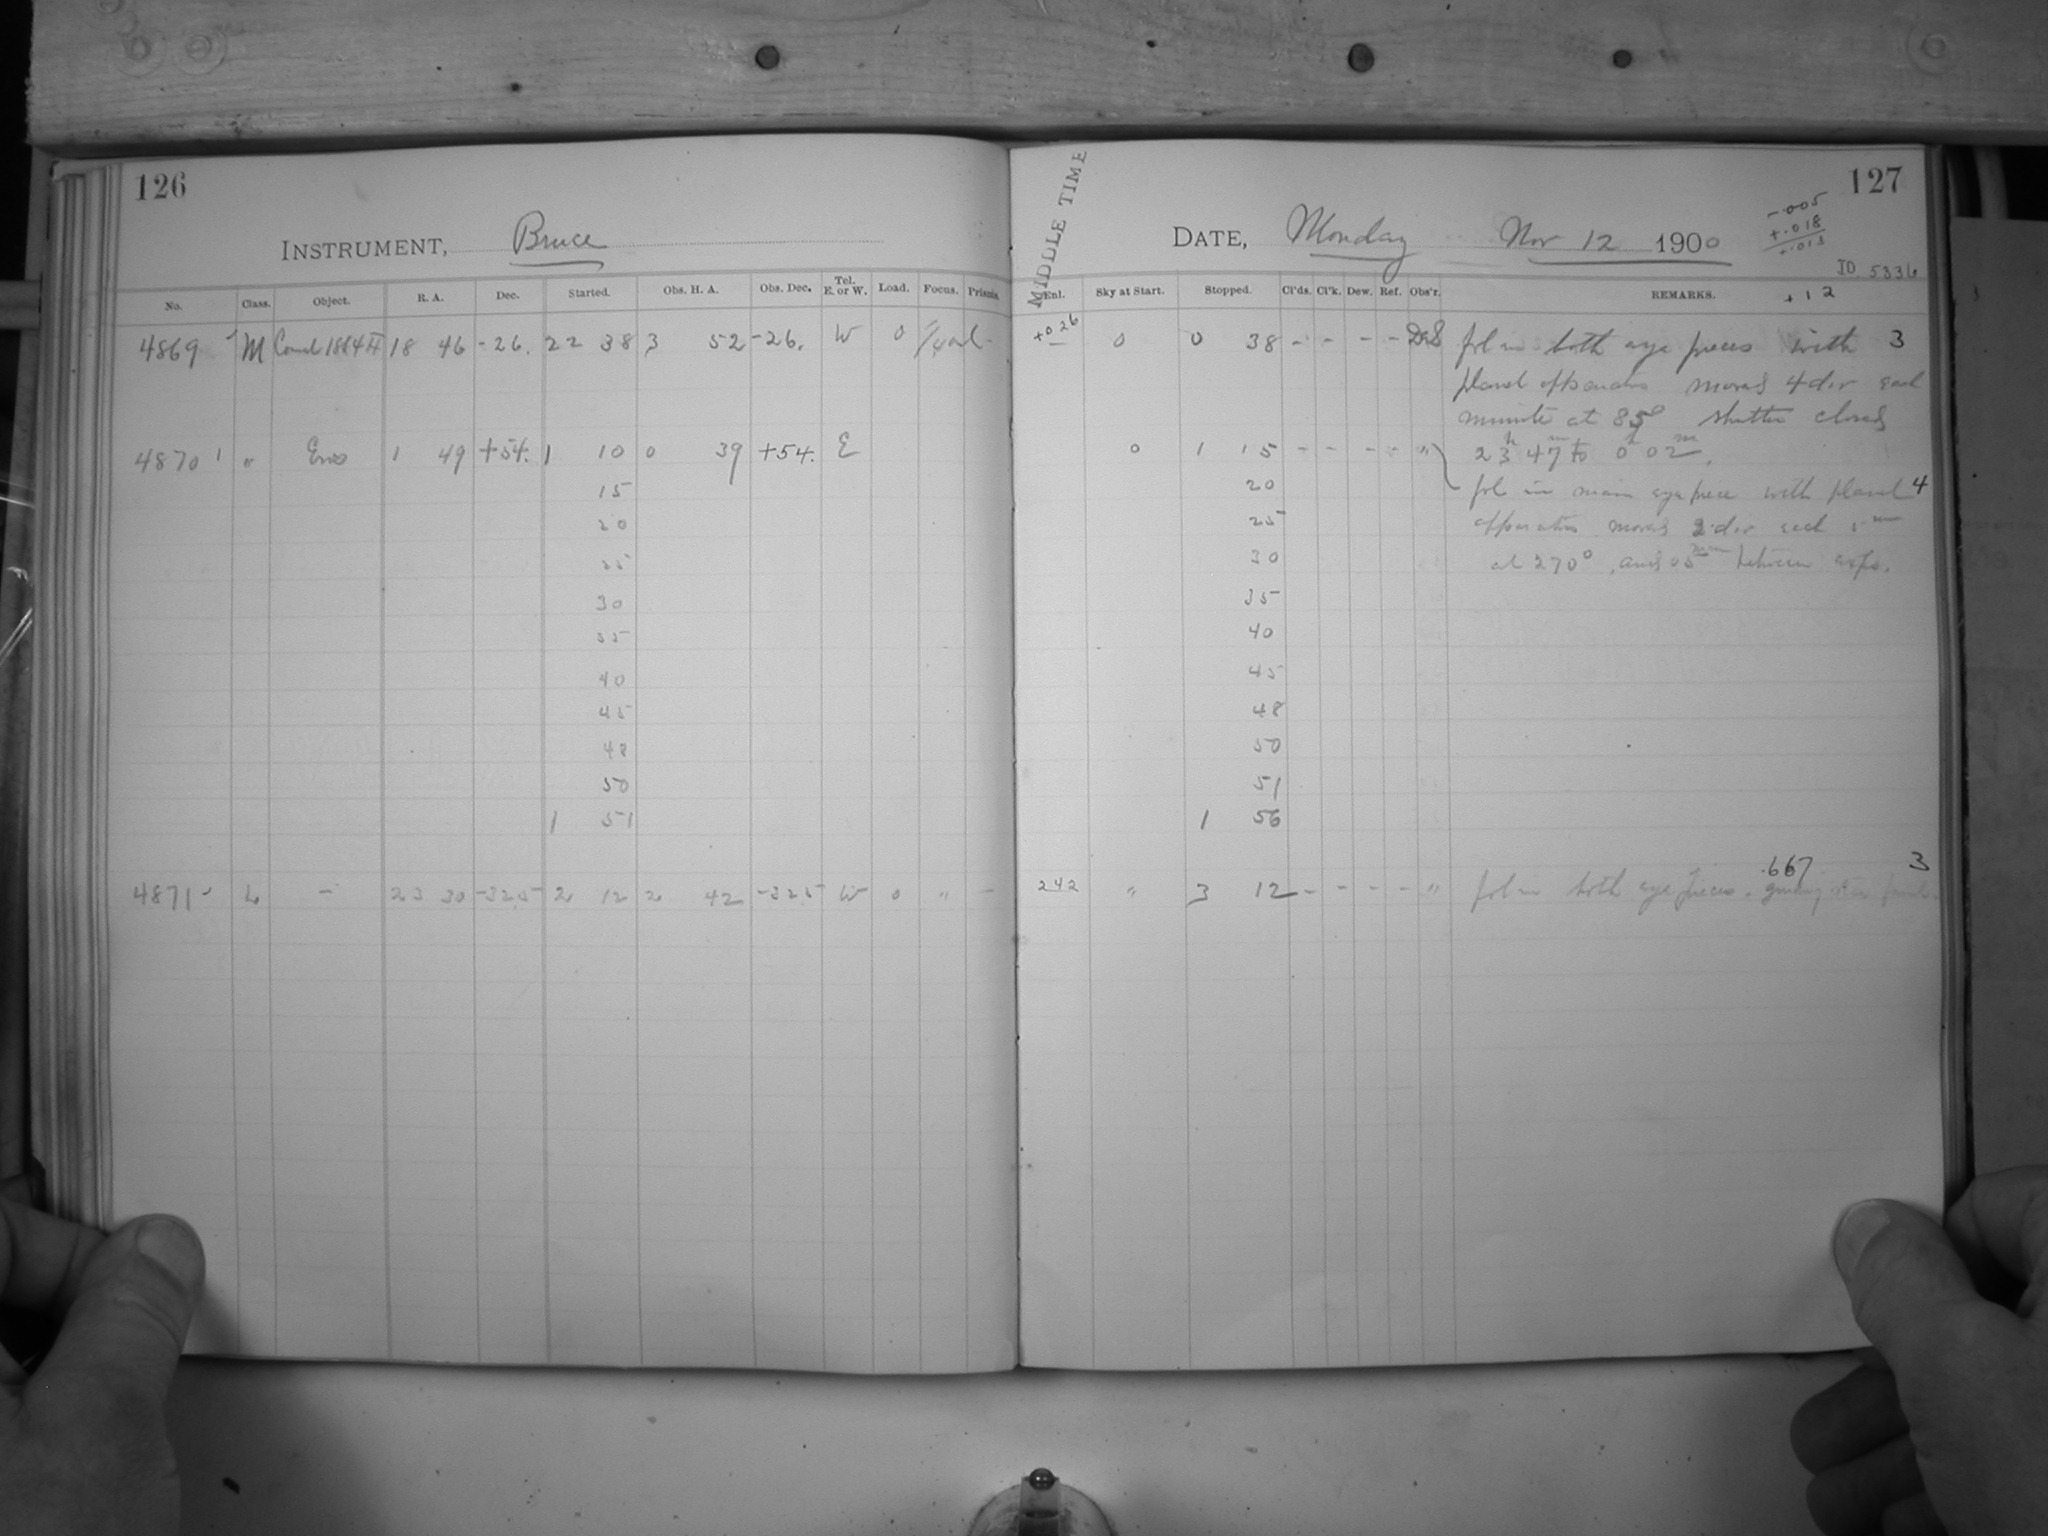 126
INSTRUMENT, Bruce
No. Class. Object. R. A. Dec. Started. Obs. H. A. Obs. Dec. Tel. E. or W. Load. Focus. Prisms.
4869 M 18 46 -26. 22 38 3 52 -26. W 0
4870 " Eros 1 49 +54. 1 10 0 39 +54. E
15
20
25
30
35
40
45
48
50
1 51
4871 L - 23 30 -32.5 2 12 2 42 -32.5 W 0 " -
127
MIDDLE TIME
DATE, Monday Nov 12 1900
-.005
+.018
+.013
JD 5336
+12
Enl. Sky at Start. Stopped. Cl'ds. Cl'k. Dew. Ref. Obs'r. REMARKS.
+026 0 0 38 - - - - fol in both eye pieces with 3
planet apparatus moved 4 div each
minute at 85° shutter closed
0 1 15 - - - - " 23h 47m to 0h 02m.
20 fol in main eye piece with planet 4
25 apparatus moved 2 div each 5m
30 at 270°, and between exps.
35
40
45
48
50
51
1 56
242 " 3 12 - - - - " fol in both eye pieces. guiding star .667 3